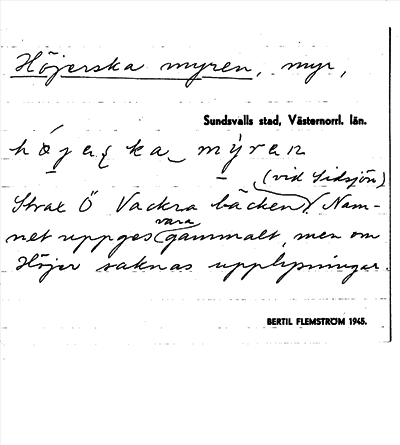 Höjerska myren, myr,
Sundsvalls stad, Västernorrl. län.
(vid Sidsjön)
Strax Ö Vackra bäcken. Nam-
vara
net uppges gammalt, men om
Höjer saknas upplysningar.
BERTIL FLEMSTRÖM 1945.